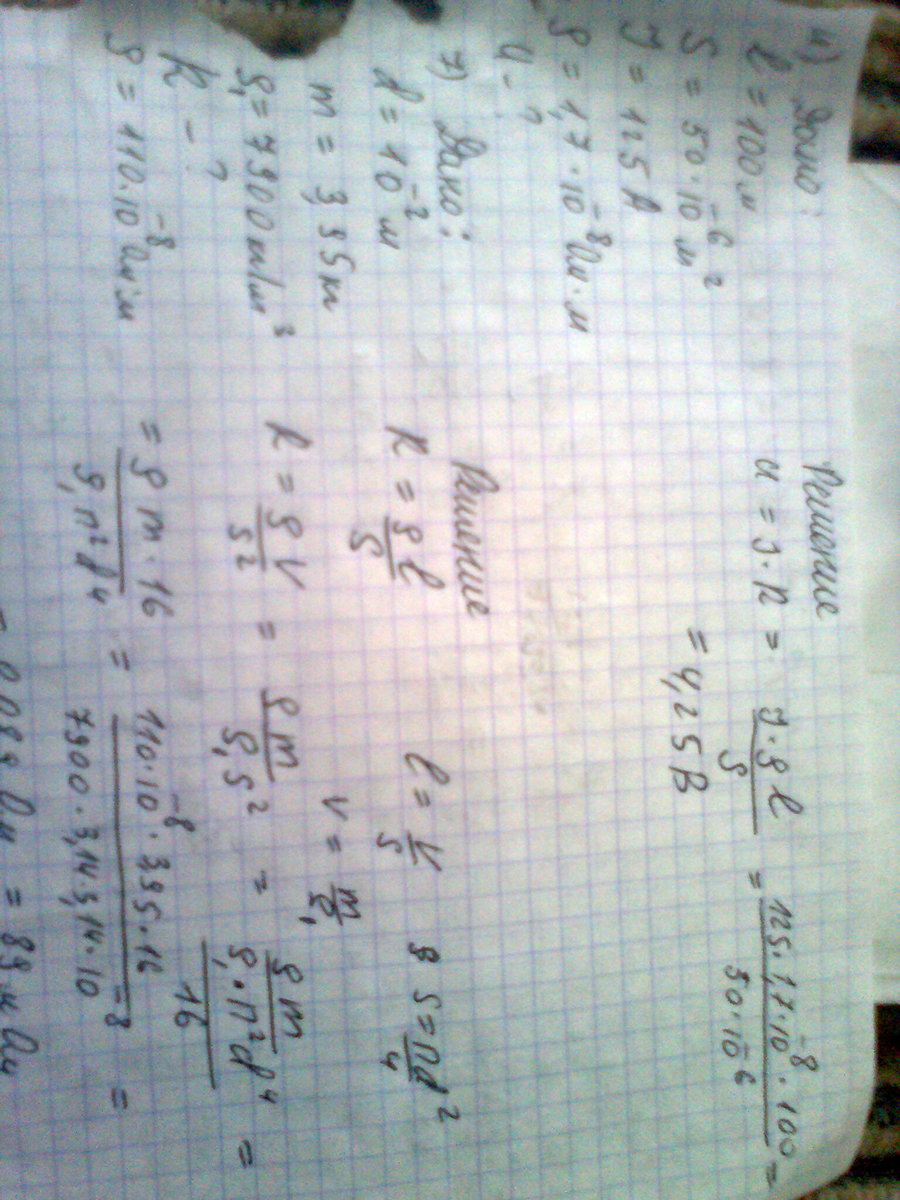 4) Дано:
l = 100 м
S = 50·10⁻⁶ м²
J = 125 А
ρ = 1,7·10⁻⁸ Ом·м
U - ?
Решение
u = J·R = J·ρl/S = 125·1,7·10⁻⁸·100/50·10⁻⁶ =
= 4,25 В
7) Дано:
d = 10⁻² м
m = 3,95 т
ρ₁ = 7900 кг/м³
R - ?
ρ = 110·10⁻⁸ Ом·м
Решение
R = ρl/S l = V/S S = πd²/4
V = m/ρ₁
R = ρV/S² = ρm/ρ₁S² = ρm/(ρ₁·π²d⁴/16) =
= ρm·16/ρ₁π²d⁴ = 110·10⁻⁸·395·16/7900·3,14·3,14·10⁻⁸ =
= 89 мОм